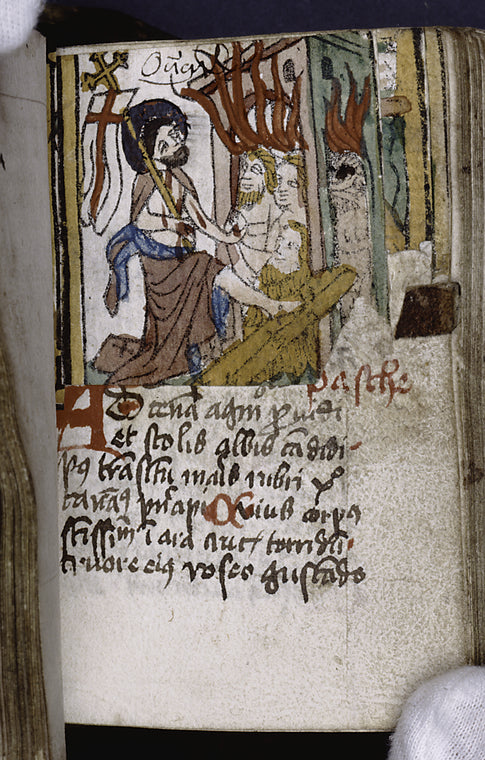 pasche
Ad cenā agni ꝓuidi
et stolis albis cādidi
pꝰ trāsitū maris rubri xp̄o
canamꝰ pⁿcipi Cuius corpꝰ
sctissimū ī ara crucꝭ torridū
cruore eiꝰ roseo gustādo